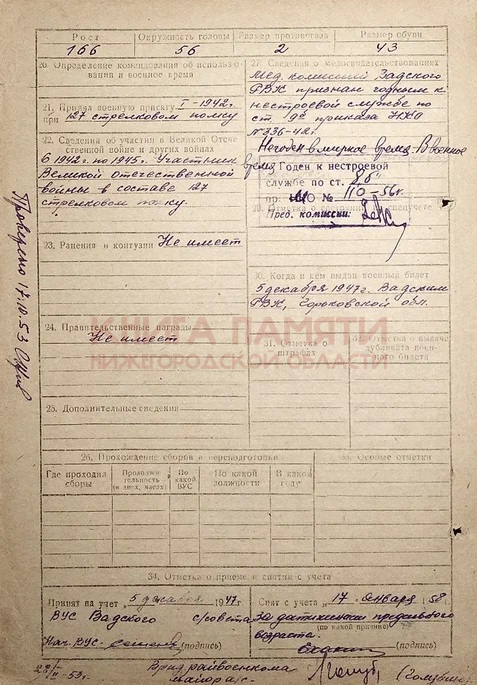 Рост Окружность головы Размер противогаза Размер обуви
166 56 2 43
20. Определение командования об использовании в военное время
21. Принял военную присягу I-1942г.
при 127 стрелковом полку
22. Сведения об участии в Великой Отечественной войне и других войнах
С 1942г. по 1945г. Участник
Великой отечественной
войны в составе 127
стрелковом полку.
23. Ранения и контузии Не имеет
24. Правительственные награды
Не имеет
25. Дополнительные сведения
27. Сведения о медосвидетельствованиях
Мед. комиссией Вадского
РВК признан годным к
нестроевой службе по
ст 9б приказа НКО
№ 336-42г.
Негоден в мирное время. В военное
время
Годен к нестроевой
службе по ст.
пр: МО № 110-56г.
Пред. комиссии:
30. Когда и кем выдан военный билет
5 декабря 1947г. Вадским
РВК, Горьковской обл.
31. Отметка о штрафах
32. Отметка о выдаче дубликата военного билета
КНИГА ПАМЯТИ
НИЖЕГОРОДСКОЙ ОБЛАСТИ
26. Прохождение сборов и переподготовки
33. Особые отметки
Где проходил сборы
Продолжительность (в днях, часах)
По какой ВУС
По какой должности
В каком году
34. Отметка о приеме и снятии с учета
Принят на учет 5 декабря 1947г.
ВУС Вадского с/совета
Нач. ВУС (подпись)
Снят с учета 17 января 1958
За достижении предельного
(по какой причине)
возраста.
(подпись)
Врид райвоенкома
майор а/с
Проверено 17.10.53